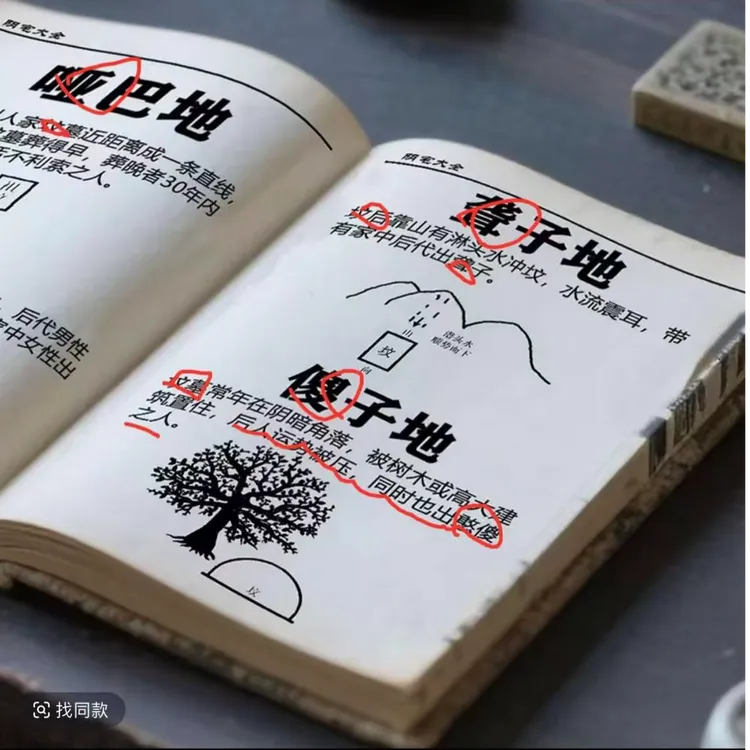 阴宅大全
哑巴地
人家坟墓近距离成一条直线,
坟墓葬得早,葬晚者30年内
不利索之人。
后代男性
中女性出
阴宅大全
聋子地
坟后靠山有淋头水冲坟,水流震耳,带
有家中后代出聋子。
山
淋头水
顺势而下
坟
向
傻子地
坟墓常年在阴暗角落,被树木或高大建
筑置住,后人运势被压,同时也出憨傻
之人。
坟
找同款